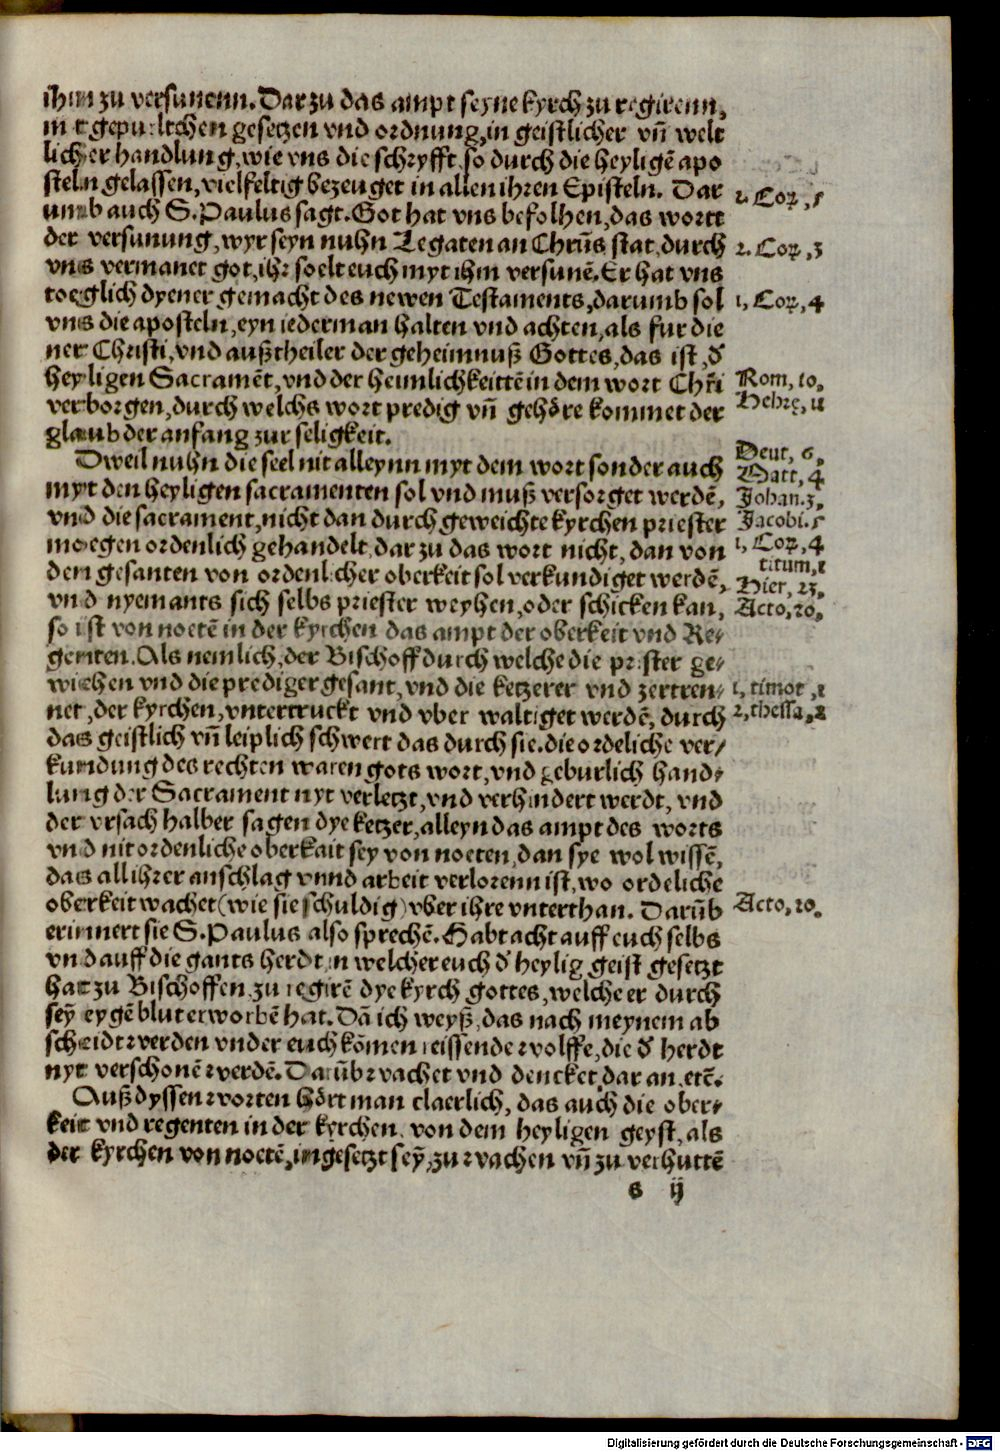 ihm zu versunenn. Dar zu das ampt seyne kyrch zu regirenn,
mit gepurlichen gesetzen vnd ordnung, in geistlicher vn̄ welt
licher handlung, wie vns die schryfft, so durch die heyligē apo
steln gelassen, vielfeltig bezeuget in allen ihren Episteln. Dar
umb auch S. Paulus sagt. Got hat vns befolhen, das wortt
der versunung, wyr seyn nuhn Legaten an Chrūs stat, durch
vns vermanet got, ihr soelt euch myt ihm versunē. Er hat vns
toeglich dyener gemacht des newen Testaments, darumb sol
vns die aposteln, eyn iederman halten vnd achten, als fur die
ner Christi, vnd außtheiler der geheimnuß Gottes, das ist, d̄
heyligen Sacramēt, vnd der heimlichkeittē in dem wort Chr̄i
verborgen, durch welchs wort predig vn̄ gehöre kommet der
glaub der anfang zur seligkeit.
Dweil nuhn die seel nit alleynn myt dem wort sonder auch
myt den heyligen sacramenten sol vnd muß versorget werdē,
vnd die sacrament, nicht dan durch geweichte kyrchen priester
moegen ordenlich gehandelt, dar zu das wort nicht, dan von
den gesanten von ordenlicher oberkeit sol verkundiget werdē,
vnd nyemants sich selbs priester weyhen, oder schicken kan,
so ist von noetē in der kyrchen das ampt der oberkeit vnd Re-
genten. Als nemlich, der Bischoff durch welche die prister ge-
wiehen vnd die prediger gesant, vnd die ketzerer vnd zertren-
net, der kyrchen, vntertruckt vnd vber waltiget werdē, durch
das geistlich vn̄ leiplich schwert das durch sie. die ordeliche ver-
kundung des rechten waren gots wort, vnd geburlich hand-
lung der Sacrament nyt verletzt, vnd verhindert werdt, vnd
der vrsach halber sagen dye ketzer, alleyn das ampt des worts
vnd nit ordenliche oberkait sey von noeten, dan sye wol wissē,
das all ihrer anschlag vnnd arbeit verlorenn ist, wo ordeliche
oberkeit wachet (wie sie schuldig) vber ihre vnterthan. Darūb
erinnert sie S. Paulus also sprechē. Habt acht auff euch selbs
vnd auff die gants herdt in welcher euch d̄ heylig geist gesetzt
hat zu Bischoffen, zu regirē dye kyrch gottes, welche er durch
sey̅ eygē blut erworbē hat. Dā ich weyß, das nach meynem ab
scheidt werden vnder euch kōmen reissende wolffe, die d̄ herdt
nyt verschonē werdē. Darūb wachet vnd dencket dar an. etē.
Auß dyssen worten hört man claerlich, das auch die ober-
keit vnd regenten in der kyrchen, von dem heyligen geyst, als
der kyrchen von noetē, ingesetzt sey̅, zu wachen vn̄ zu verhuttē
s ij
2. Cor, 5
2. Cor, 3
1, Cor, 4
Rom, 10.
Hebre, 11
Deut, 6,
Matt, 4
Johan. 3,
Jacobi. 5
1, Cor, 4
titum, 1
Hier, 23,
Acto, 20,
1, timot, 1
2, thessa, 2
Acto, 20.
Digitalisierung gefördert durch die Deutsche Forschungsgemeinschaft - DFG